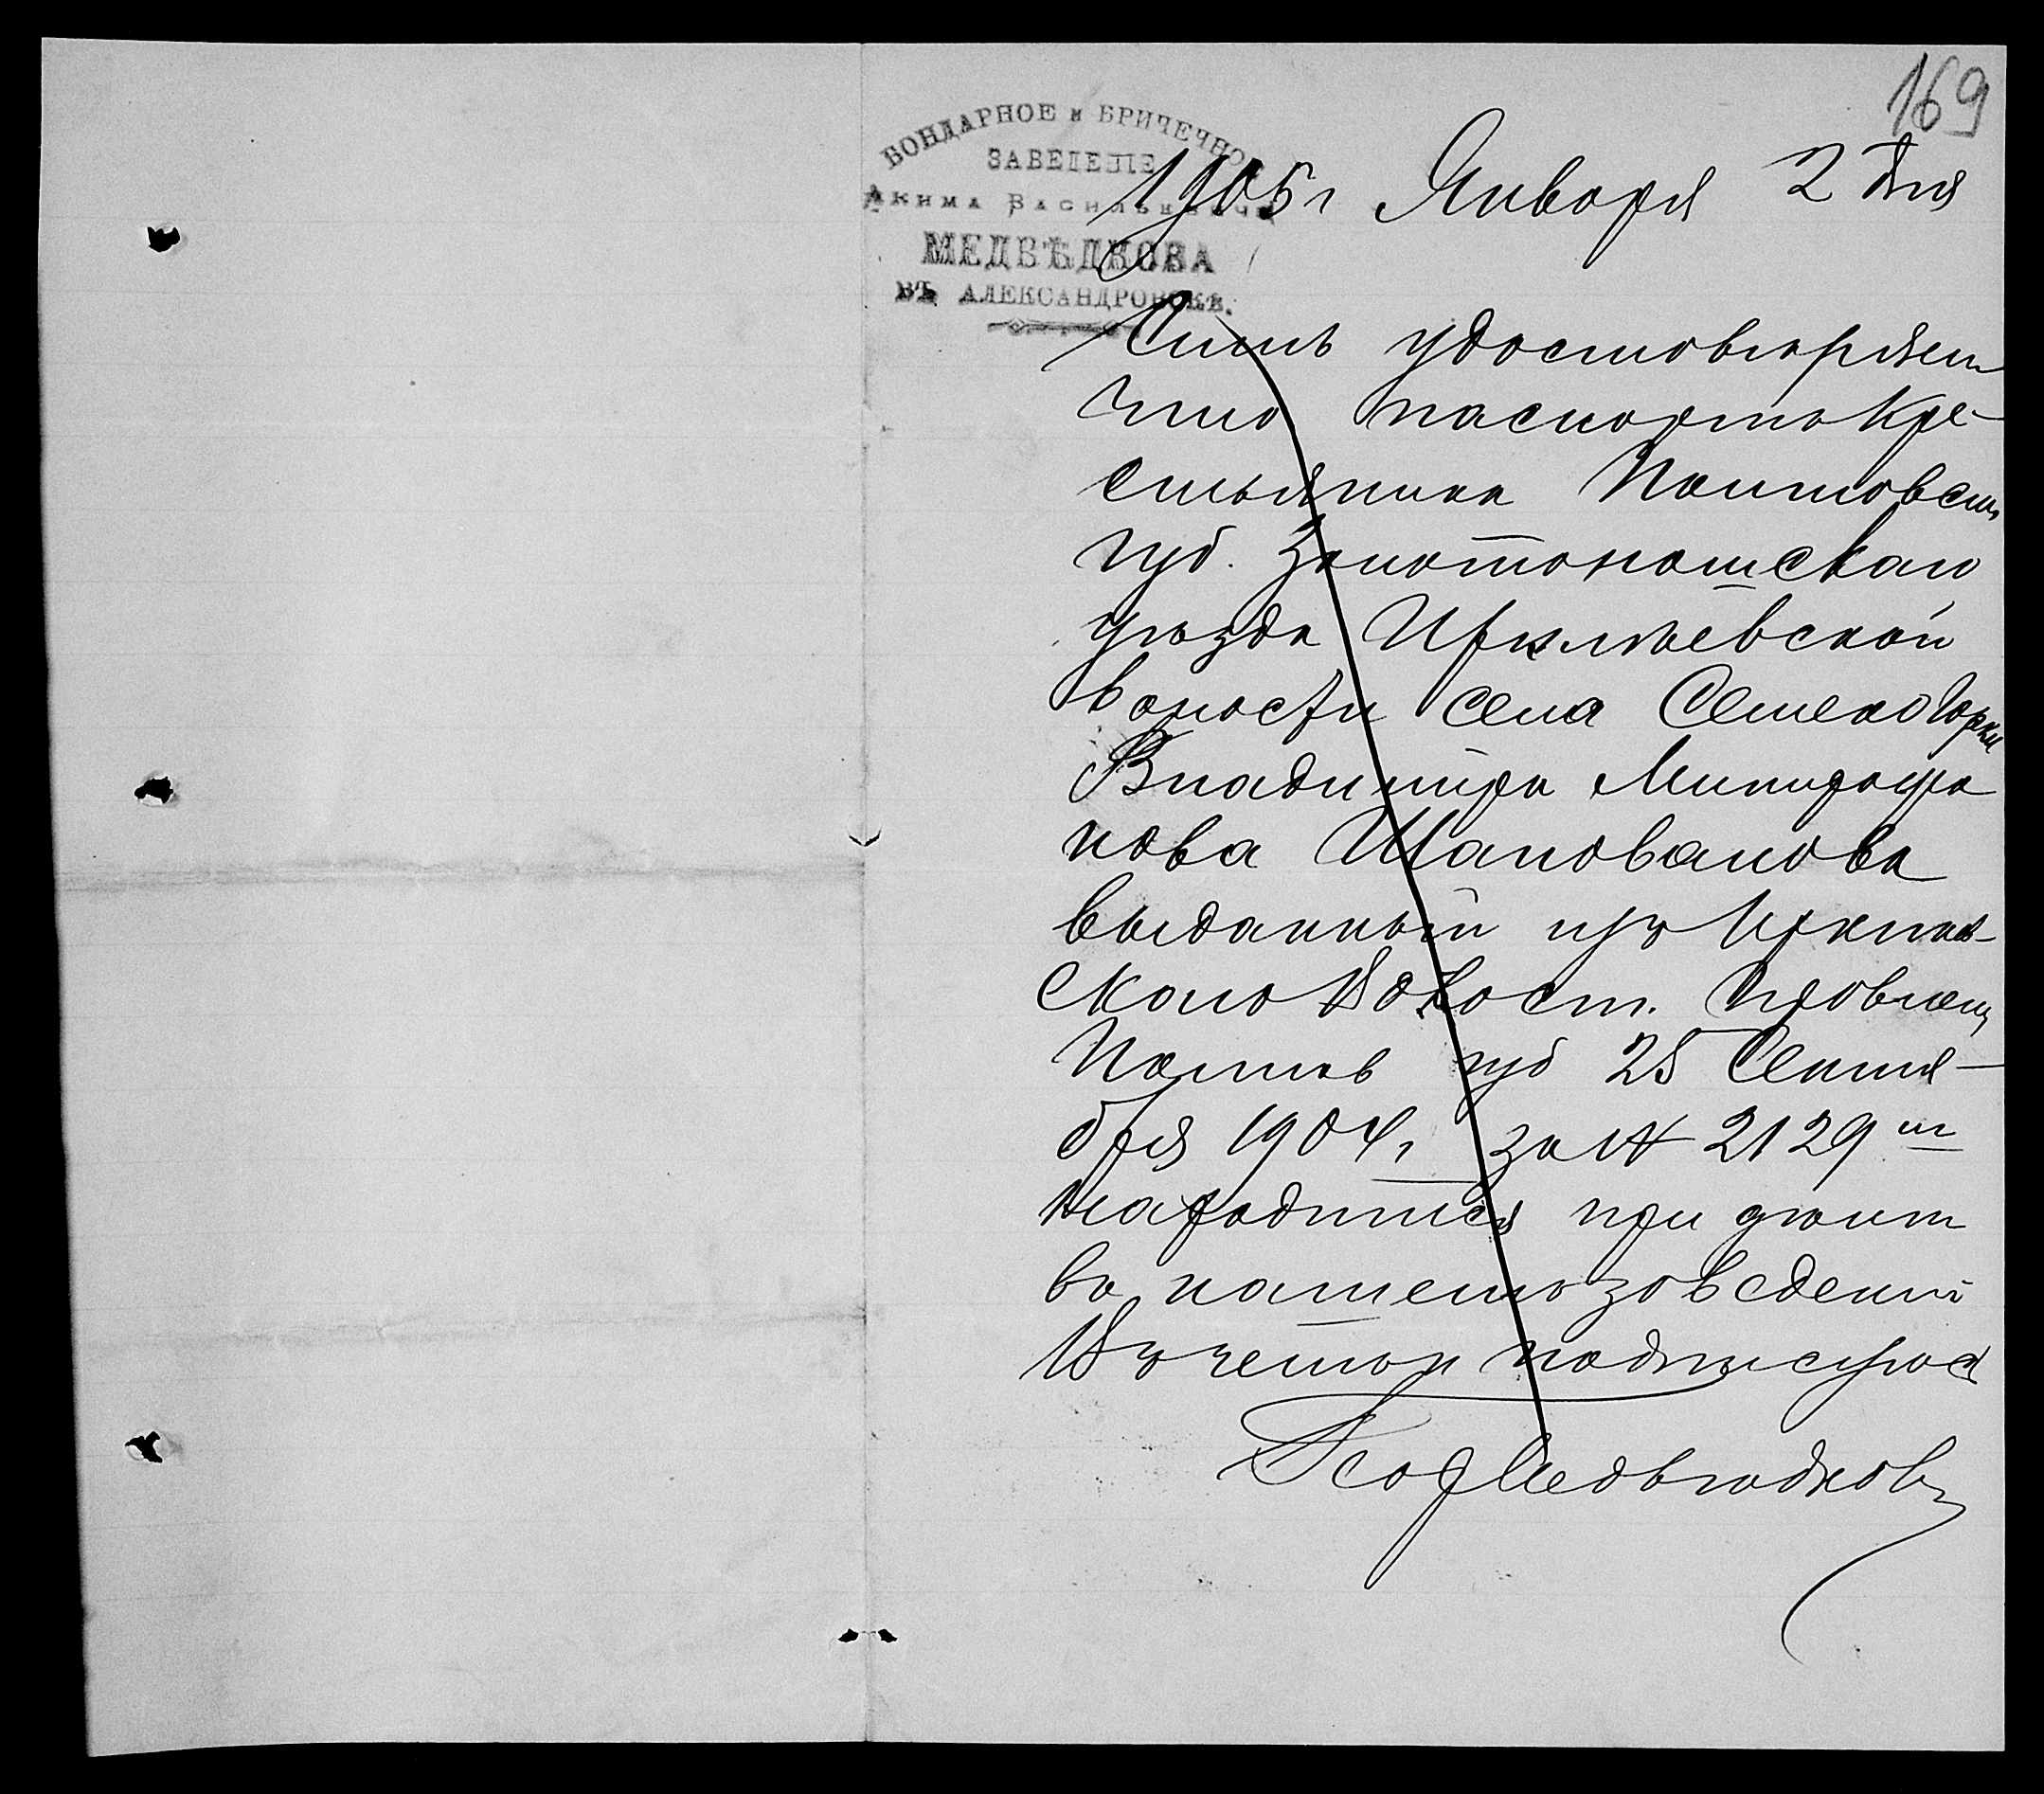 169
БОНДАРНОЕ и БРИЧЕЧНОЕ
ЗАВЕДЕНІЕ
Акима Васильевича
МЕДВѢДКОВА
ВЪ АЛЕКСАНДРОВСКѢ.
1905 г Января 2 дня
Симъ удостовѣряем
что паспортъ кре-
стьянина Полтовск
губ. Золотоношскаго
уѣзда Ирклѣевской
волости села
Владиміра Митрофа
нова Шаповалова
выданный изъ
скаго Волост. Правлен
Полтав губ 25 Сентя-
бря 1904 г за № 2129
находится при
во нашемъ заведеніи
В чемъ и подписуюс
Медвѣдковъ